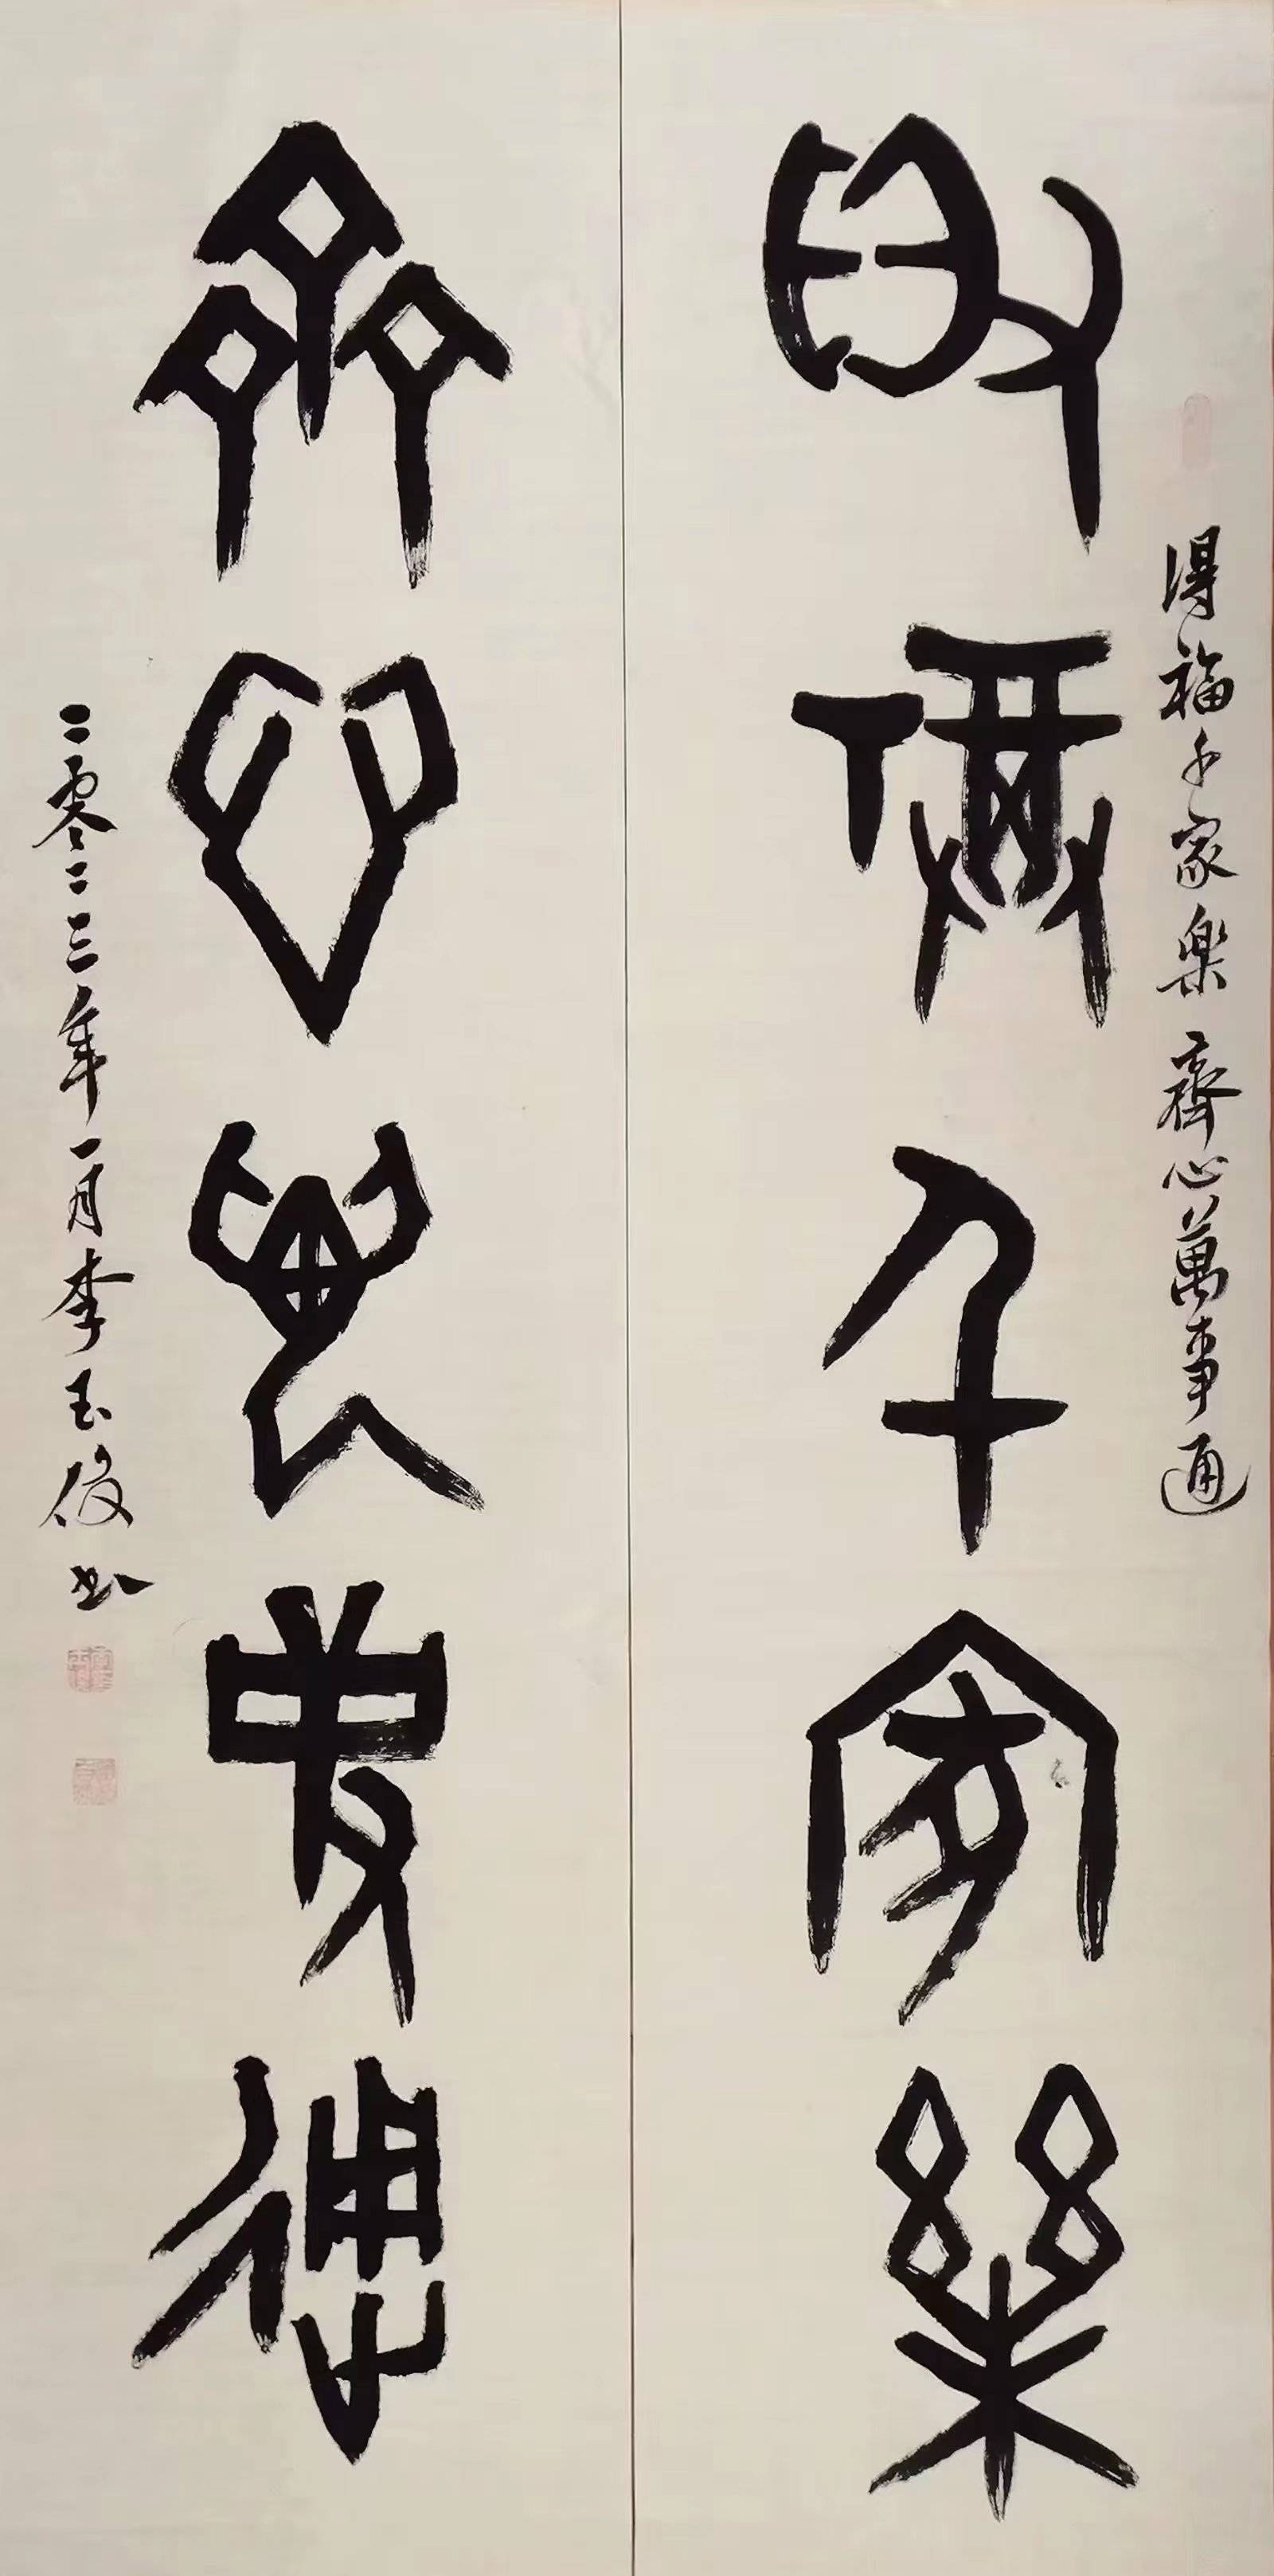 得福千家樂
齊心萬事通
得福千家樂 齊心萬事通
二零二三年一月李玉俊书